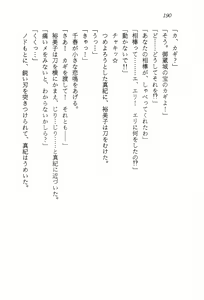 190
「カ、カギ？」
「そうよ。御蔵城の宝のカギよ！」
「ど、どうして、それを……」
「あなたの相棒が、しゃべってくれたわ」
「相棒って……エ、エリ！　エリに何をしたの!?」
「動かないで!!」
チャキッ☆
つめよろうとした真紀に。
「うっ……」
「きゃっ……」
千春が小さな悲鳴をあげる。
「さあ！　カギを渡して！　それとも……」
裕美子は刀を横にかまえ、じりっ……じりっ……と真紀に
「痛いメをみないと、わからないかしら？」
「くくくっ……」
ノドもとに、鋭い刃を突きつけられて、真紀はうめく。